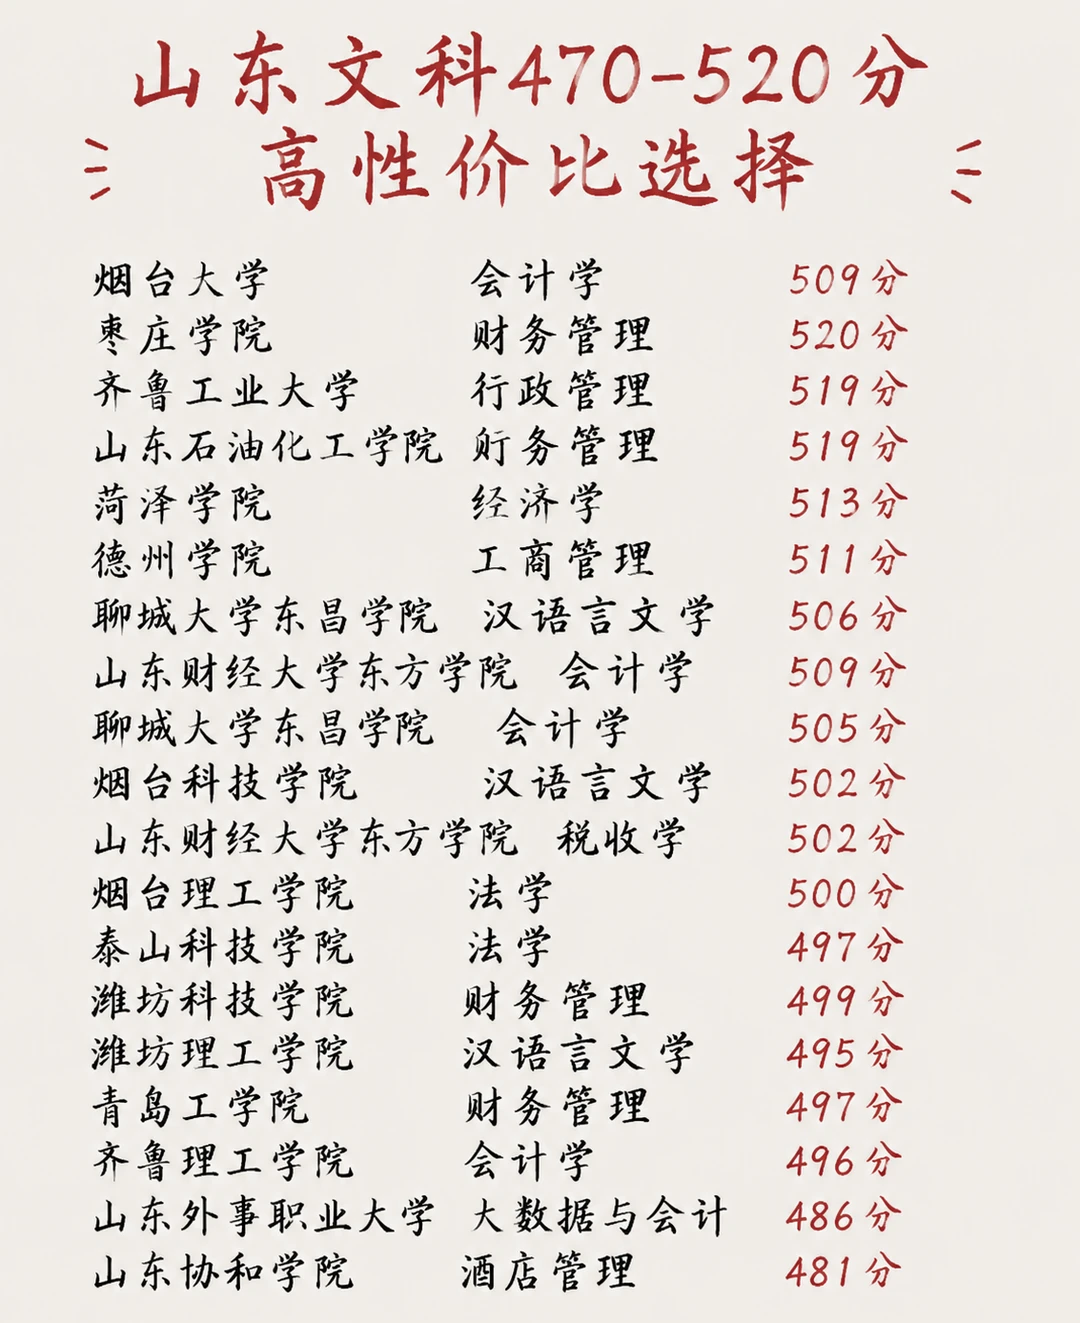 山东文科470-520分
高性价比选择
烟台大学 会计学 509分
枣庄学院 财务管理 520分
齐鲁工业大学 行政管理 519分
山东石油化工学院 务管理 519分
菏泽学院 经济学 513分
德州学院 工商管理 511分
聊城大学东昌学院 汉语言文学 506分
山东财经大学东方学院 会计学 509分
聊城大学东昌学院 会计学 505分
烟台科技学院 汉语言文学 502分
山东财经大学东方学院 税收学 502分
烟台理工学院 法学 500分
泰山科技学院 法学 497分
潍坊科技学院 财务管理 499分
潍坊理工学院 汉语言文学 495分
青岛工学院 财务管理 497分
齐鲁理工学院 会计学 496分
山东外事职业大学 大数据与会计 486分
山东协和学院 酒店管理 481分